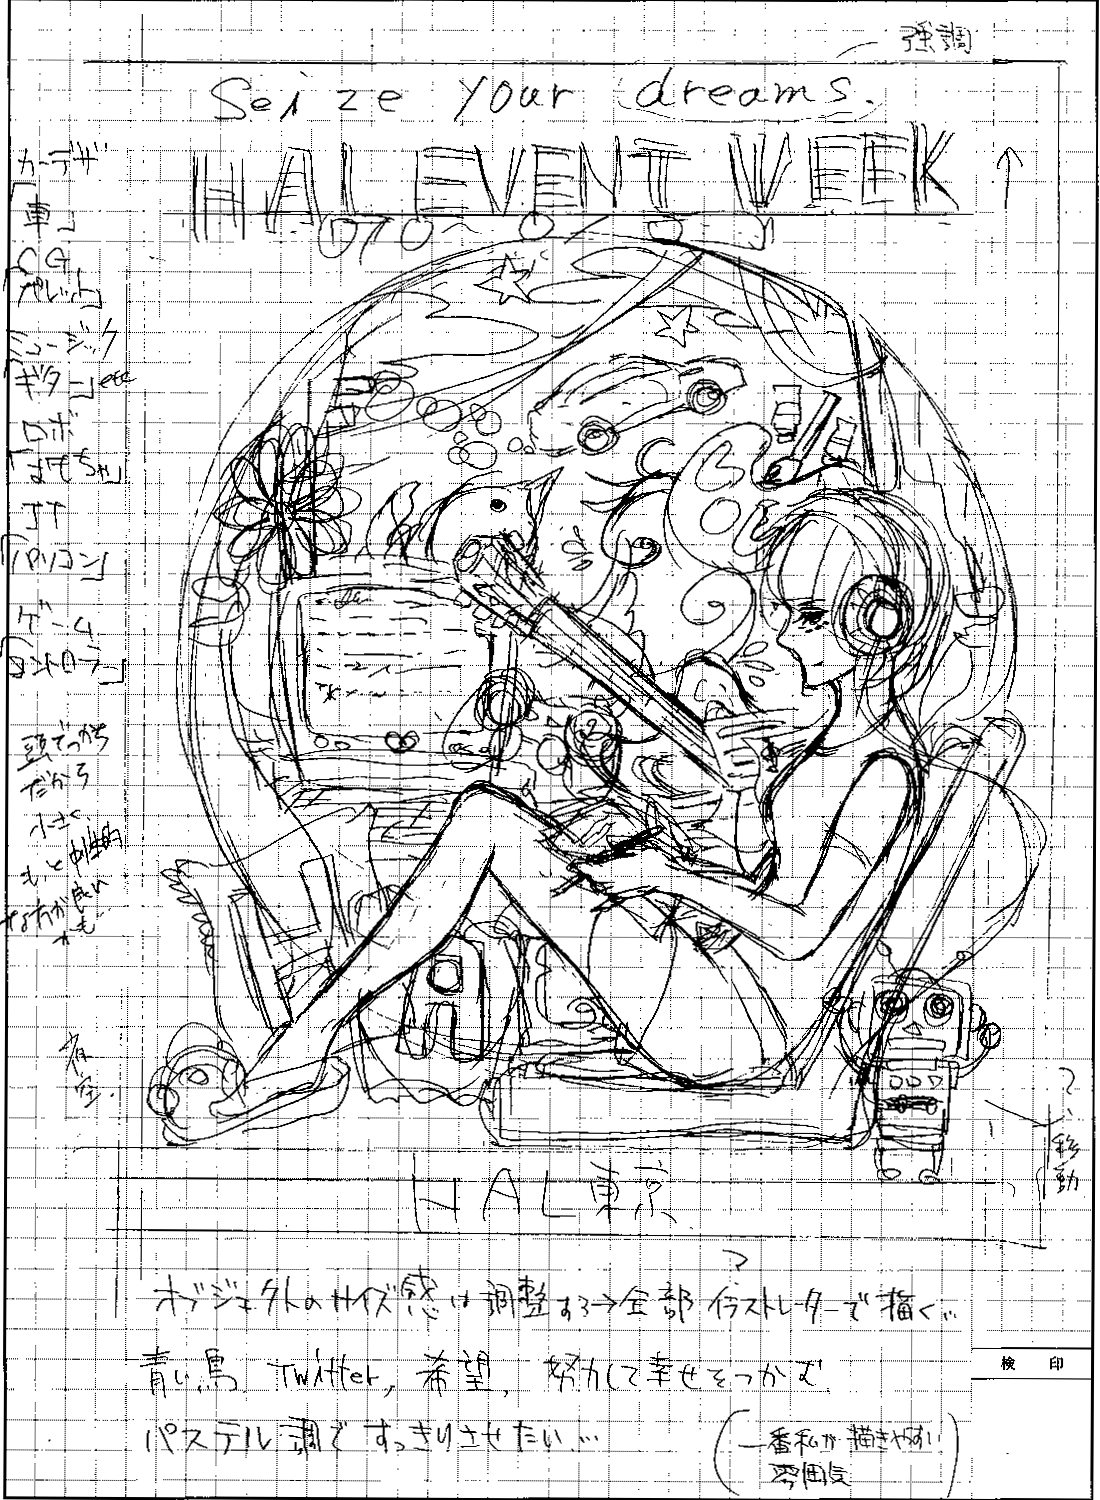 強調
Seize your dreams.
HAL EVENT WEEK
カーデザ
「車」
CG
「パレット」
ミュージック
「ギター」etc
ロボ
「おもちゃ」
IT
「パソコン」
ゲーム
「コントローラ」
頭でっかち
だから
小さく
もっと中性的
な方が良い
かも
夜空.
移動
HAL東京
オブジェクトのサイズ感は調整する→全部イラストレーターで描く…
青い鳥 Twitter, 希望, 努力して幸せをつかむ
パステル調ですっきりさせたい…
(一番私が描きやすい
雰囲気)
検 印